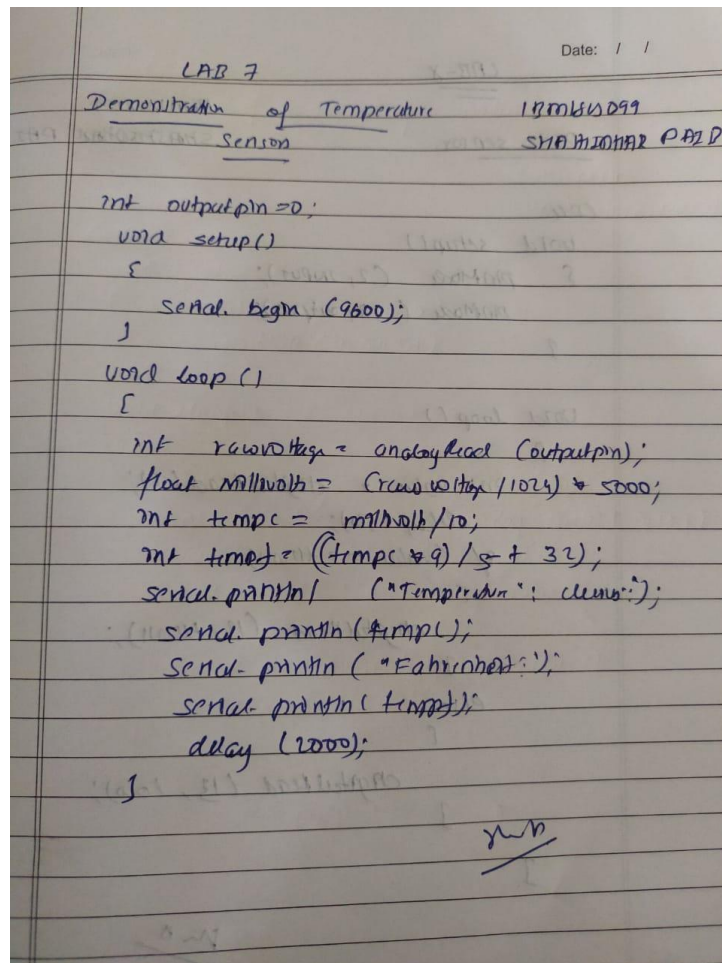 Date: / /
LAB 7
Demonstration of Temperature
Sensor
int outputpin =0;
void setup()
{
serial. begin (9600);
}
void loop ()
{
int rawvoltage = analogRead (outputpin);
float millivolts = (rawvoltage /1024) * 5000;
int tempc = millivolts/10;
int tempf = ((tempc *9) /5+ 32);
serial. println ("Temperature": celsius:");
serial. println (tempc);
serial. println ( "Fahrenheit:");
serial. println ( tempf);
delay (2000);
}